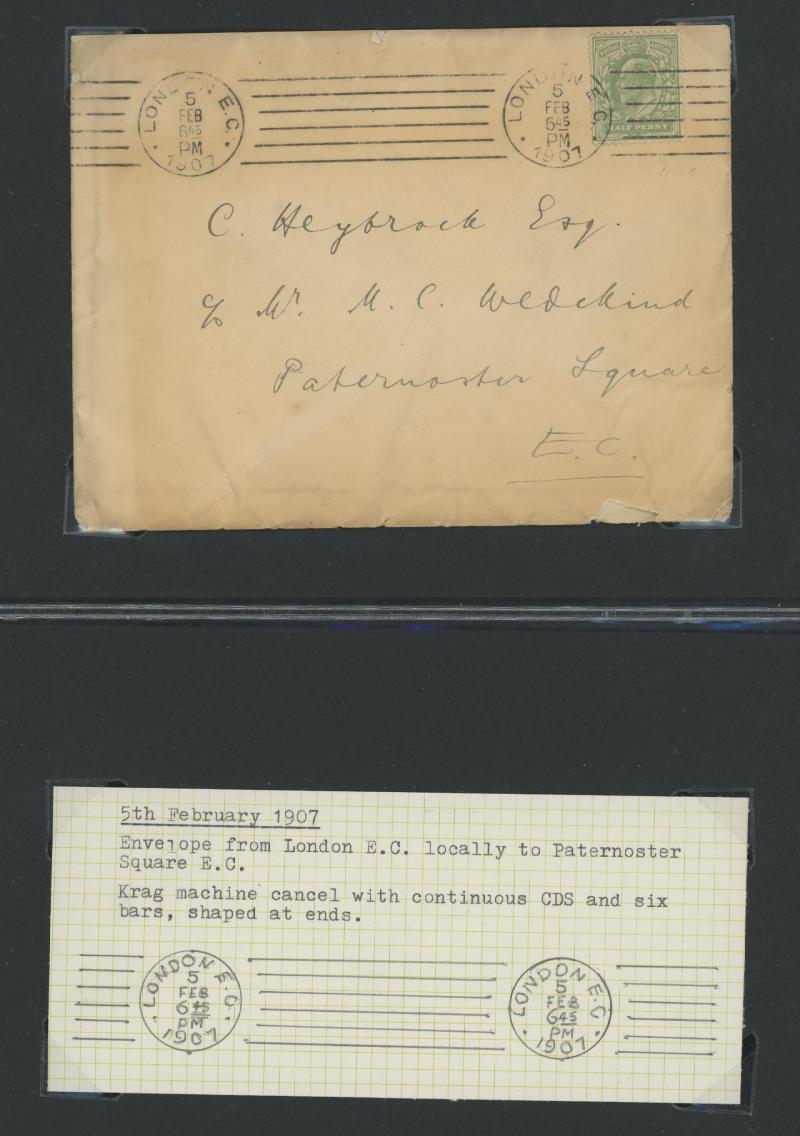 LONDON E.C.
5
FEB
6 45
PM
1907
LONDON E.C.
5
FEB
6 45
PM
1907
HALF PENNY
C. Heybrock Esq.
c/o Mr. M. C. Wedekind
Paternoster Square
E.C.
5th February 1907
Envelope from London E.C. locally to Paternoster
Square E.C.
Krag machine cancel with continuous CDS and six
bars, shaped at ends.
LONDON E.C.
5
FEB
6 45
PM
1907
LONDON E.C
5
FEB
645
PM
1907